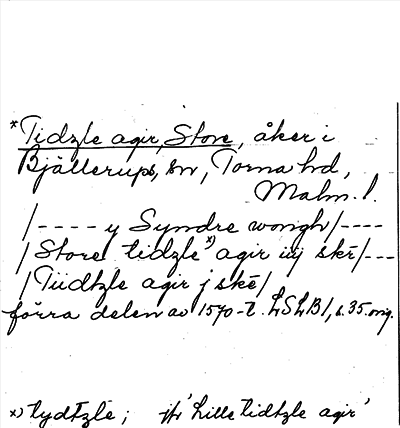 *Tidzle agir, Store, åker i
Bjällerups, sn, Torna hd,
Malm. l.
/---- y Syndre wongh/----
/Store tidzle x) agir iiij skē/---
/Tiidtzle agir j skē/
förra delen av 1570-t. LSLB1, s. 35. orig.
x) tydtzle; jfr 'Lille tidtzle agir'